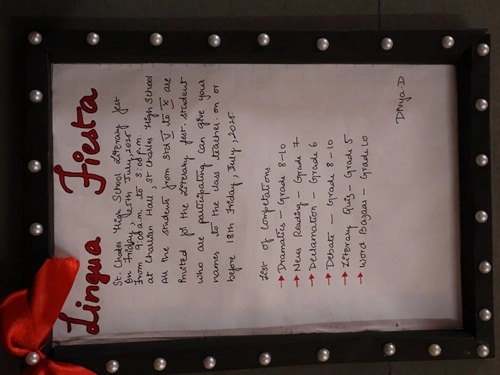 Lingua Fiesta
St. Charles High School Literary fest
On Friday, 25th July, 2025
From 9:00 a.m. to 3:00 p.m.
at Chavian Hall St Charles High School
All the students from std V to X are
invited for the literary fest. student
who are participating can give your
names to the class teacher. on or
before 18th Friday, July, 2025
List of Competations
→ Dramatics - Grade 8-10
→ News Reading - Grade 7
→ Declamation - Grade 6
→ Debate - Grade 8-10
→ Literary Quiz - Grade 5
→ Word Bagaar - Grade 10
Divya.D